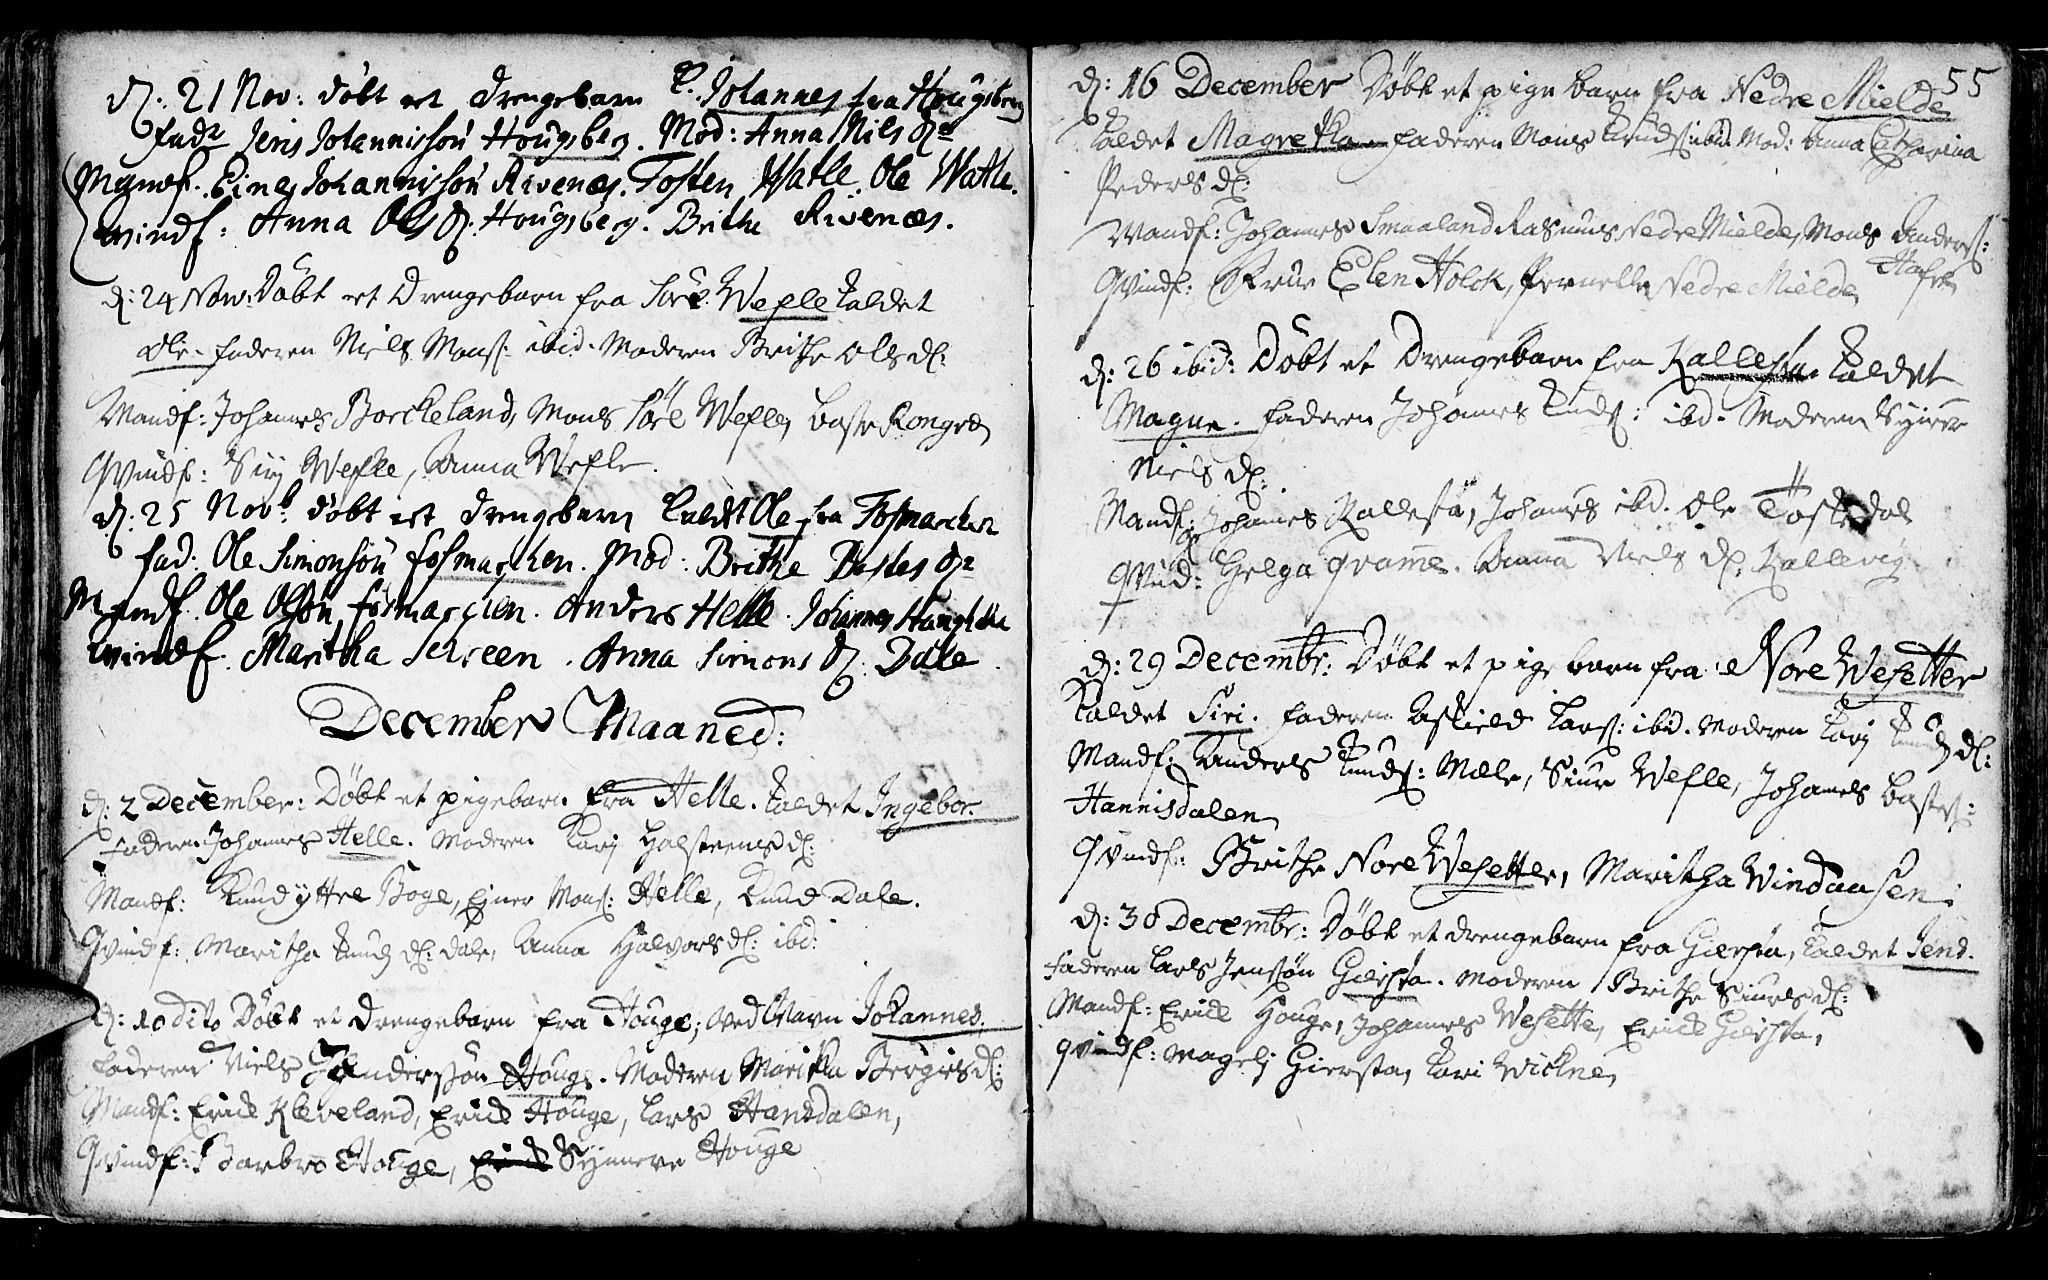 d: 21 Nov: døbt et drengebarn Johannes fra Hougsberg
fadr Jens Johannissøn Hougsberg. Mod: Anna Nils Dr
Mandf. Einer Johannissøn Rivenæs. Tosten Watle. Ole Watle.
qvindf: Anna Ols D. Hougsberg. Brithe Rivenæs.
d: 24 Nov: Døbt et Drengebarn fra Søre Wefle kaldet
Ole. faderen Niels Mons: ibid. Moderen Brithe Ols d:
Mandf: Johannes Borcheland, Mons Søre Wefle, Baste Kongre
Qvindf: Siri Wefle, Anna Wefle.
d: 25 Novb: døbt et drengebarn kaldt Ole fra Fosmarchen
fad: Ole Simonsøn Fosmarchen. Mod: Brithe Bastes Dr
Mandf. Ole Olsøn Fosmarchen. Anders Helle. Johannes
qvindf. Maritha Schreen. Anna Simons D. Dale.
December Maaned:
d: 2 December: Døbt et pigebarn fra Helle. kaldet Ingebor.
faderen Johannes Helle. Moderen Kari Halsteens d:
Mandf: Knud ÿttre Boge, Ejner Mons: Helle, Knud Dale.
Qvindf: Maritha Knuds d: Dale, Anna Halvors d: ibid:
d: 10 dito Døbt et drengebarn fra Houge, ved Navn Johannes.
faderen Niels Anderssøn Houge. Moderen Maritha Børgies d:
Mandf: Erick Kleveland, Erick Houge, Lars Hansdalen,
Qvindf: Barbro Houge, Synneve Houge
55
d: 16 December Døbt et pige barn fra Nedre Mielde
kaldet Magretha. faderen Mons Knuds: ibid. Mod: Anna Catharina
Peders d:
Mandf: Johannes Smaaland Rasmus Nedre Mielde, Mons Anders:
Qvindf: Frue Elen Holck, Pernelle Nedre Mielde,
d: 26 ibid: Døbt et Drengebarn fra Kallesta. kaldet
Magne. faderen Johannes Knuds: ibd. Moderen Synneve
Niels d:
Mandf: Johannes Kallesta, Johannes ibd. Ole Tostedal
Qvind: Helga Qvamme. Anna Niels d: Kallevig
d: 29 Decembr: Døbt et pige barn fra Nore Wesetter
kaldet Siri. faderen Askield Lars: ibid. Moderen Kari Knuds d:
Mandf: Anders Knuds: Mæle, Siur Wefle, Johannes Bastes:
Hannisdalen
Qvindf: Brithe Nore Wesetter, Maritha Windaasen:
d: 30 Decembr: Døbt et drengebarn fra Giersta, kaldet Jens.
faderen Lars Jensøn Giersta. Moderen Brithe Siurs d:
Mandf: Erick Houge, Johannes Wesette, Erick Giersta,
qvindf: Mageli Giersta, Kari Wickne,